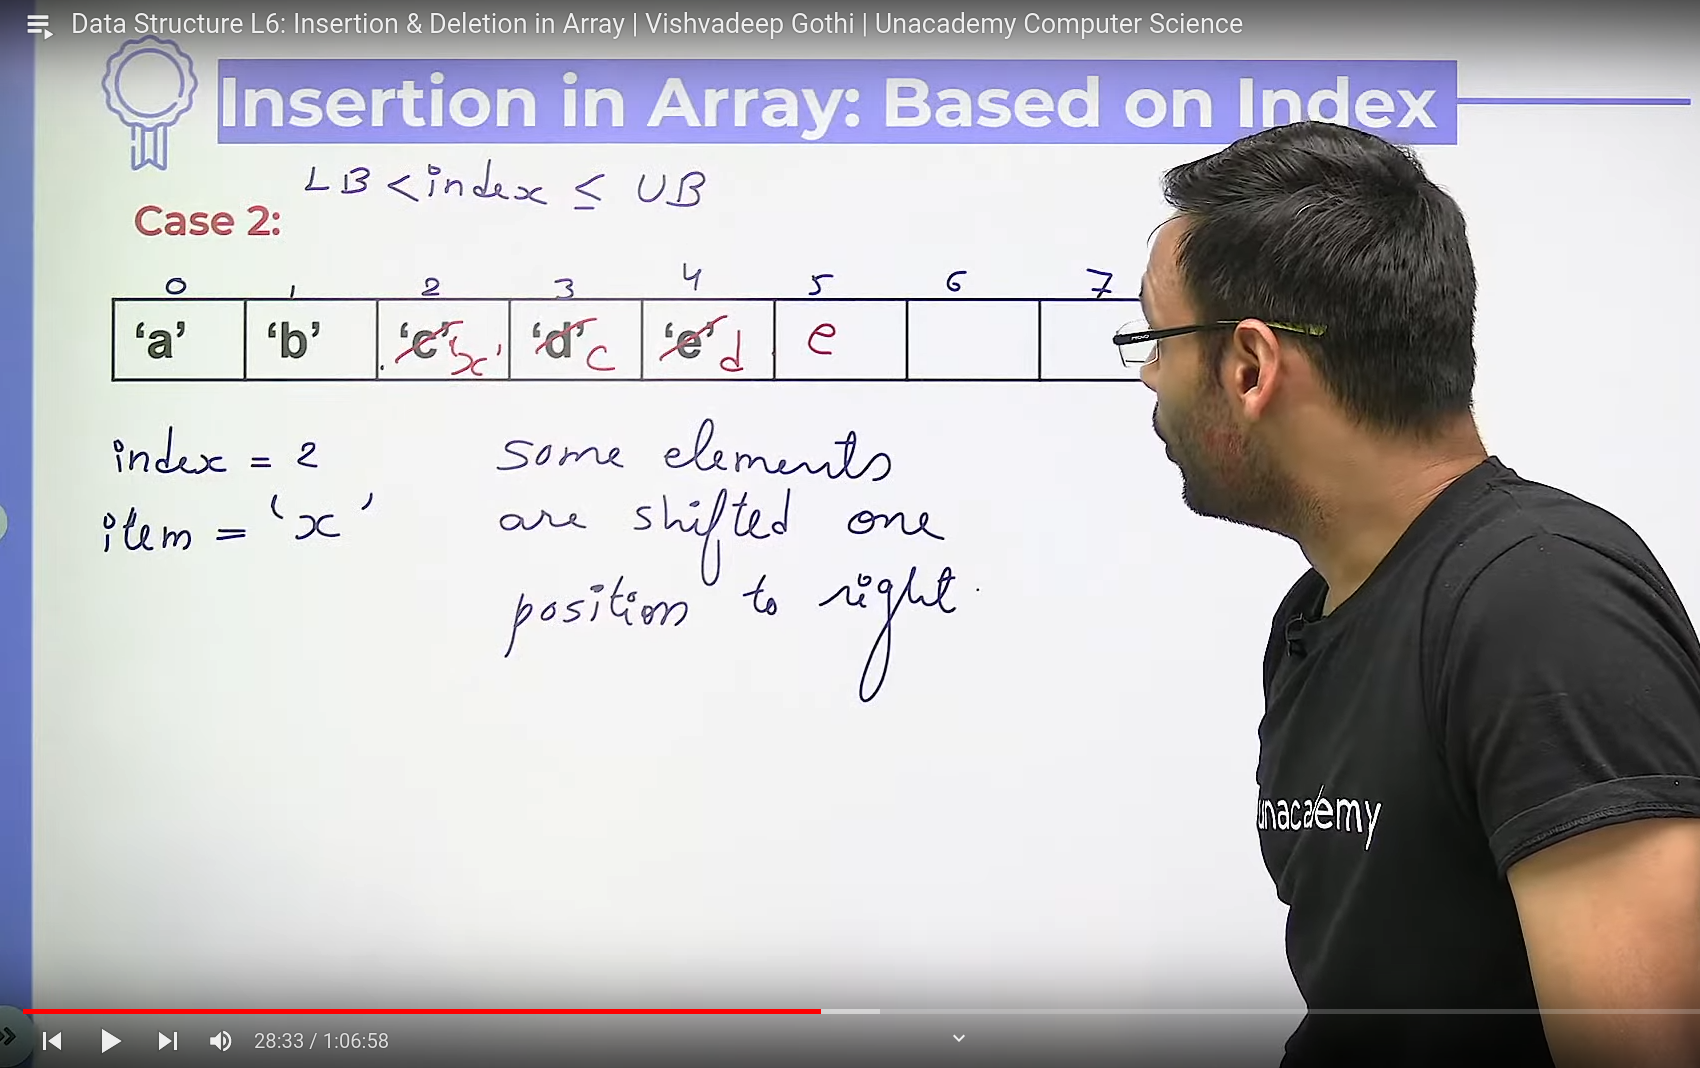 Data Structure L6: Insertion & Deletion in Array | Vishvadeep Gothi | Unacademy Computer Science
Insertion in Array: Based on Index
LB < index ≤ UB
Case 2:
0 1 2 3 4 5 6 7
'a' 'b' 'c' 'x' 'd' c 'e' d e
index = 2
item = 'x'
some elements
are shifted one
position to right.
unacademy
28:33 / 1:06:58